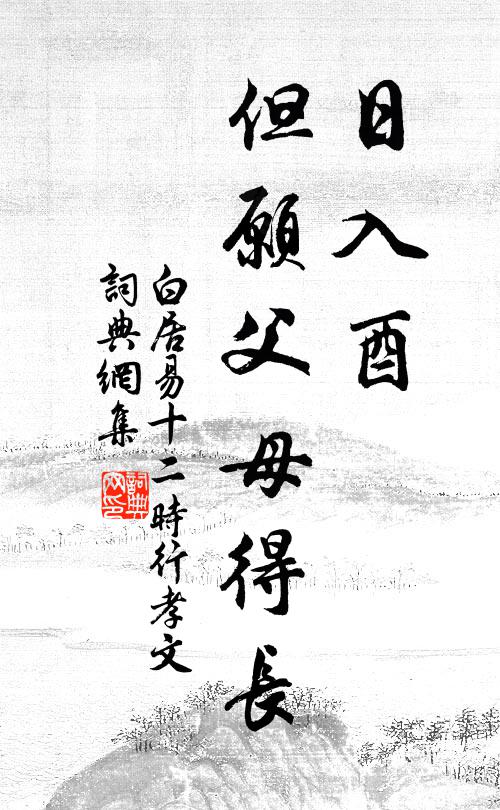 日入酉
但願父母得長
白居易十二時行孝文
詞典網集
詞典
网印